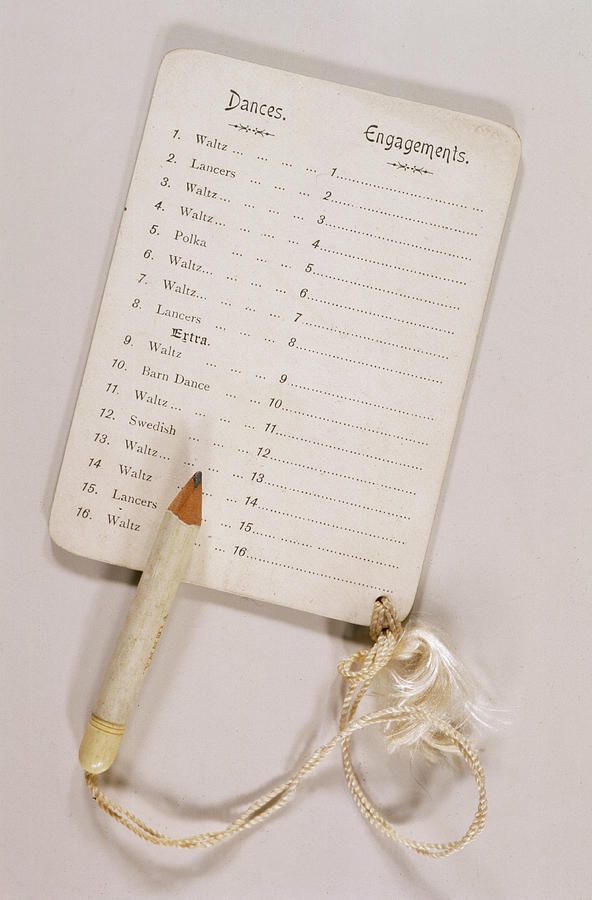 Dances. Engagements.
1. Waltz ... ... ... ... 1.
2. Lancers ... ... ... 2.
3. Waltz ... ... ... ... 3.
4. Waltz ... ... ... ... 4.
5. Polka ... ... ... 5.
6. Waltz... ... ... ... 6.
7. Waltz... ... ... ... 7.
8. Lancers ... ... ... 8.
Extra.
9. Waltz ... ... ... 9.
10. Barn Dance ... ... 10.
11. Waltz... ... ... ... 11.
12. Swedish ... ... ... 12.
13. Waltz... ... ... 13.
14 Waltz ... ... 14.
15. Lancers ... 15.
16. Waltz ... ... 16.